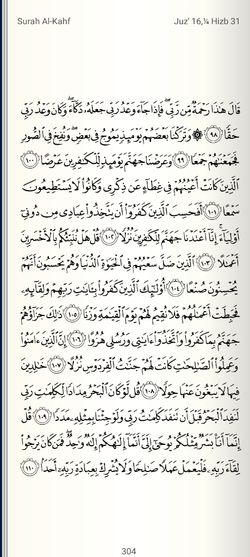 Surah Al-Kahf
Juz' 16,¼ Hizb 31
قَالَ هَٰذَا رَحْمَةٌ مِّن رَّبِّي ۖ فَإِذَا جَآءَ وَعْدُ رَبِّي جَعَلَهُۥ دَكَّآءَ ۖ وَكَانَ وَعْدُ رَبِّي
حَقًّا ٩٨ ۞ وَتَرَكْنَا بَعْضَهُمْ يَوْمَئِذٍ يَمُوجُ فِي بَعْضٍ ۖ وَنُفِخَ فِي ٱلصُّورِ
فَجَمَعْنَٰهُمْ جَمْعًا ٩٩ وَعَرَضْنَا جَهَنَّمَ يَوْمَئِذٍ لِّلْكَٰفِرِينَ عَرْضًا ١٠٠
ٱلَّذِينَ كَانَتْ أَعْيُنُهُمْ فِي غِطَآءٍ عَن ذِكْرِي وَكَانُوا۟ لَا يَسْتَطِيعُونَ
سَمْعًا ١٠١ أَفَحَسِبَ ٱلَّذِينَ كَفَرُوٓا۟ أَن يَتَّخِذُوا۟ عِبَادِي مِن دُونِيٓ
أَوْلِيَآءَ ۚ إِنَّآ أَعْتَدْنَا جَهَنَّمَ لِلْكَٰفِرِينَ نُزُلًا ١٠٢ قُلْ هَلْ نُنَبِّئُكُم بِٱلْأَخْسَرِينَ
أَعْمَٰلًا ١٠٣ ٱلَّذِينَ ضَلَّ سَعْيُهُمْ فِي ٱلْحَيَوٰةِ ٱلدُّنْيَا وَهُمْ يَحْسَبُونَ أَنَّهُمْ
يُحْسِنُونَ صُنْعًا ١٠٤ أُو۟لَٰٓئِكَ ٱلَّذِينَ كَفَرُوا۟ بِـَٔايَٰتِ رَبِّهِمْ وَلِقَآئِهِۦ
فَحَبِطَتْ أَعْمَٰلُهُمْ فَلَا نُقِيمُ لَهُمْ يَوْمَ ٱلْقِيَٰمَةِ وَزْنًا ١٠٥ ذَٰلِكَ جَزَآؤُهُمْ
جَهَنَّمُ بِمَا كَفَرُوا۟ وَٱتَّخَذُوٓا۟ ءَايَٰتِي وَرُسُلِي هُزُوًا ١٠٦ إِنَّ ٱلَّذِينَ ءَامَنُوا۟
وَعَمِلُوا۟ ٱلصَّٰلِحَٰتِ كَانَتْ لَهُمْ جَنَّٰتُ ٱلْفِرْدَوْسِ نُزُلًا ١٠٧ خَٰلِدِينَ
فِيهَا لَا يَبْغُونَ عَنْهَا حِوَلًا ١٠٨ قُل لَّوْ كَانَ ٱلْبَحْرُ مِدَادًا لِّكَلِمَٰتِ رَبِّي
لَنَفِدَ ٱلْبَحْرُ قَبْلَ أَن تَنفَدَ كَلِمَٰتُ رَبِّي وَلَوْ جِئْنَا بِمِثْلِهِۦ مَدَدًا ١٠٩ قُلْ
إِنَّمَآ أَنَا۠ بَشَرٌ مِّثْلُكُمْ يُوحَىٰٓ إِلَيَّ أَنَّمَآ إِلَٰهُكُمْ إِلَٰهٌ وَٰحِدٌ ۖ فَمَن كَانَ يَرْجُوا۟
لِقَآءَ رَبِّهِۦ فَلْيَعْمَلْ عَمَلًا صَٰلِحًا وَلَا يُشْرِكْ بِعِبَادَةِ رَبِّهِۦٓ أَحَدًۢا ١١٠
304